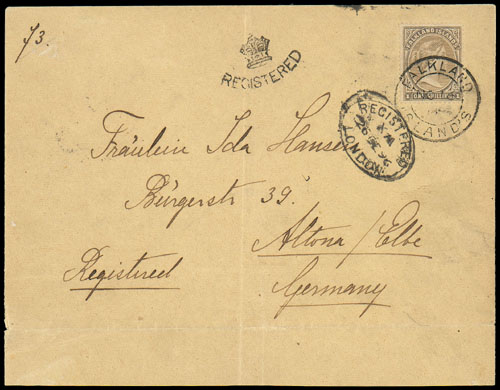 73.
REGISTERED
FALKLAND ISLANDS
ONE SHILLING
FALKLAND
ISLANDS
REGISTERED
LONDON
Fräulein Ida Hansen
Bürgerstr 39.
Altona / Elbe
Registered
Germany